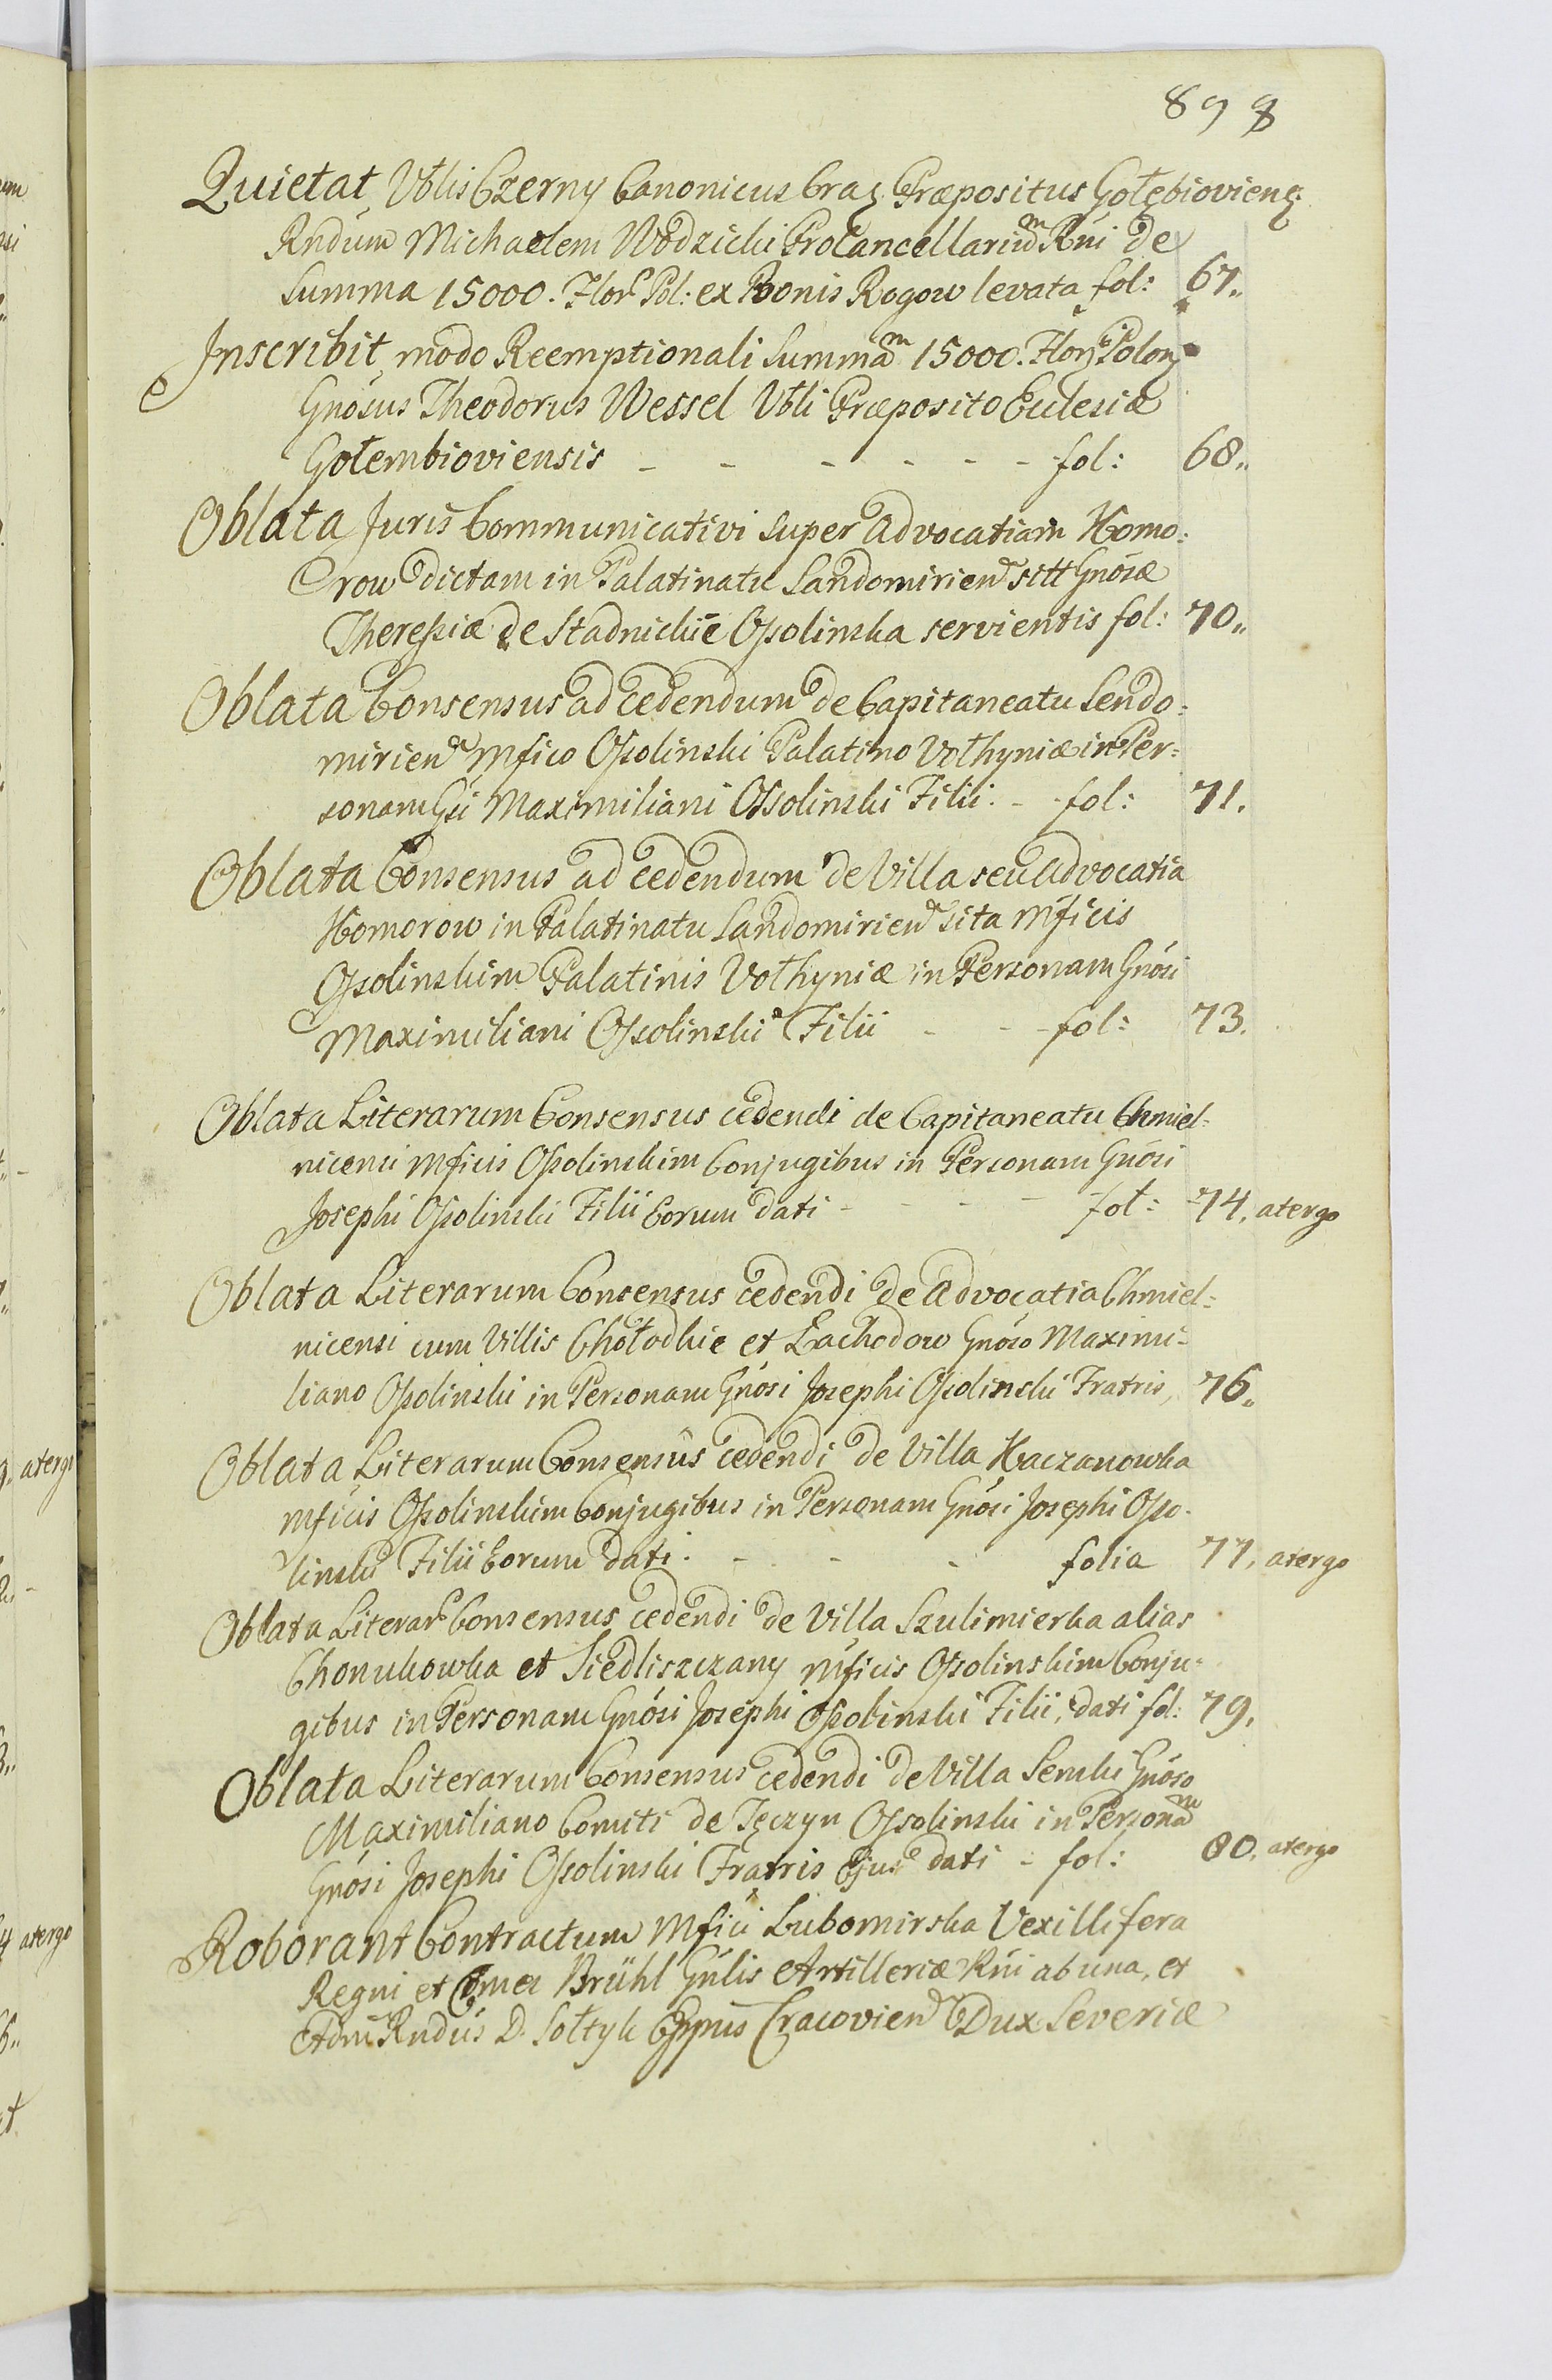 898
Quietat Vblis Czerny Canonicus Crac. Præpositus Gołębioviensis
Rndum Michaelem Wodzicki Procancellarium Rni de
Summa 15000. Flor. Pol: ex Bonis Rogow levata fol: 67.
Inscribit modo Reemptionali Summam 15000. Flor. Polon.
Gnosus Theodorus Wessel Vbli Præposito Ecclesiæ
Gołembioviensis - - - - - - fol: 68.
Oblata Juris Communicativi super Advocatiam Komo:
row dictam in Palatinatu Sandomirien sitt Gnosæ
Theressiæ de Stadnickie Ossolinska servientis fol: 70.
Oblata Consensus ad cedendum de Capitaneatu Sendo:
mirien Mfico Ossolinski Palatino Vołhyniæ in Per:
sonam Gsi Maximiliani Ossolinski Filii. - fol: 71.
Oblata Consensus ad cedendum de Villa seu Advocatia
Komorow in Palatinatu Sandomirien sita Mficis
Ossolinskim Palatinis Vołhyniæ in Personam Gnosi
Maximiliani Ossolinski Filii - - fol: 73.
Oblata Literarum Consensus cedendi de Capitaneatu Chmiel:
nicensi Mficis Ossolinskim Conjugibus in Personam Gnosi
Josephi Ossolinski Filii Eorum dati - - - fol: 74. atergo
Oblata Literarum Consensus cedendi de Advocatia Chmiel:
nicensi cum Villis Chołodkie et Lachodow Gnoso Maximi-
liano Ossolinski in Personam Gnosi Josephi Ossolinski Fratris, 76.
Oblata Literarum Consensus cedendi de Villa Kaczanowka
Mficis Ossolinskim Conjugibus in Personam Gnosi Josephi Osso-
linski Filii Eorum dati. - - - folia 77. atergo
Oblata Literar Consensus cedendi de Villa Szulimierka alias
Chonukowka et Siedliszczany Mficis Ossolinskim Conju-
gibus in Personam Gnosi Josephi Ossolinski Filii, dati fol: 79.
Oblata Literarum Consensus cedendi de Villa Senki Gnoso
Maximiliano Comiti de Tęczyn Ossolinski in Personam
Gnosi Josephi Ossolinski Fratris Ejus dati - fol: 80. atergo
Roborant Contractum Mfici Lubomirska Vexillifera
Regni et Comes Brühl Gnlis Artilleriæ Rni ab una, et
Adm Rndus D. Sołtyk Eppus Cracovien Dux Severiæ